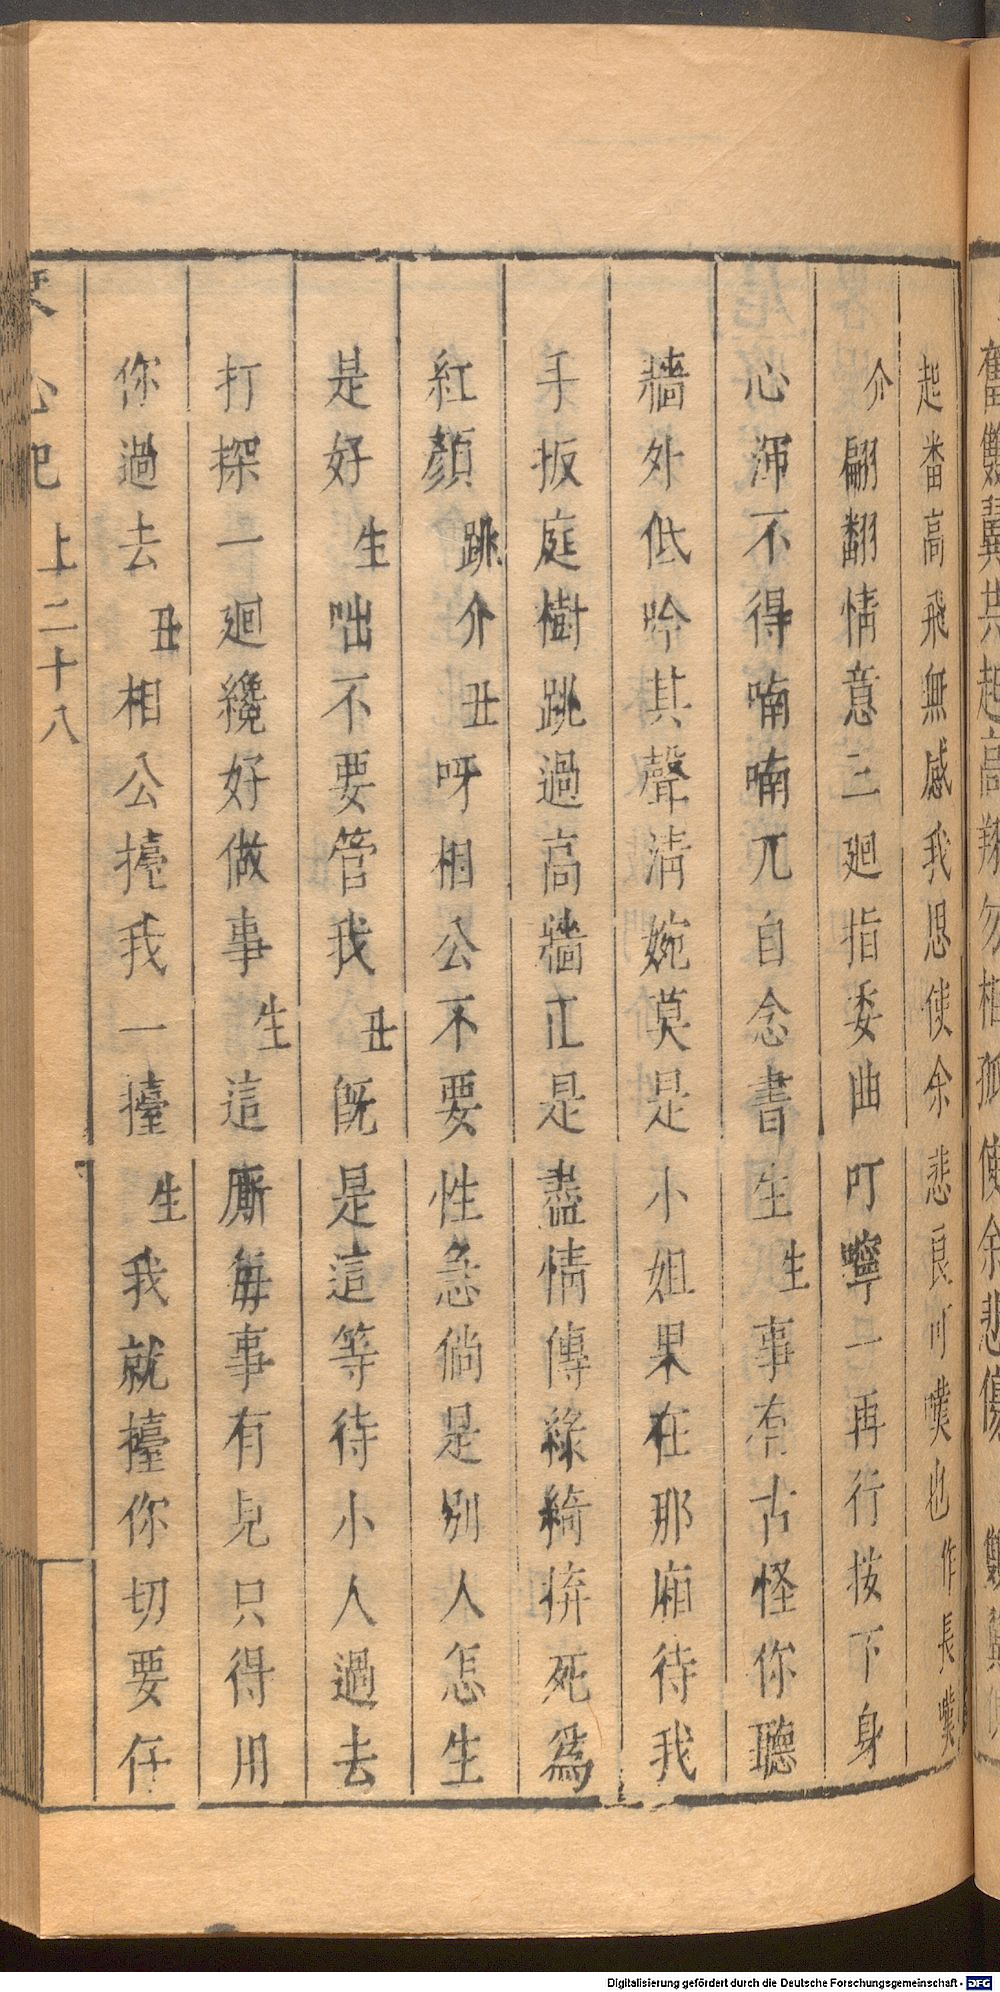 奮雙翼共起高翔勿相孤使余悲傷 雙翼
起番高飛無感我思使余悲良可嘆也作長嘆
介翩翻情意三廻指委曲叮嚀一再行按下身
心渾不得喃喃兀自念書生生事有古怪你聽
牆外低吟其聲清婉莫是小姐果在那廂待我
手扳庭樹跳過高牆正是盡情傳綠綺拚死為
紅顏跳介丑呀相公不要性急倘是別人怎生
是好生咄不要管我丑旣是這等待小人過去
打探一廻纔好做事生這廝每事有見只得用
你過去丑相公擡我一擡生我就擡你切要仔
上二十八
Digitalisierung gefördert durch die Deutsche Forschungsgemeinschaft - DFG